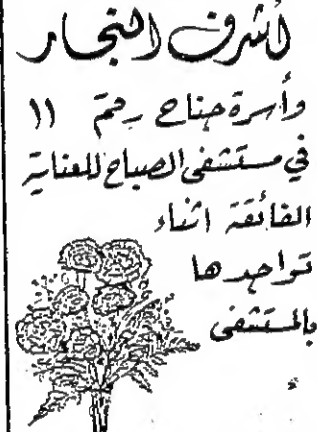 أشرف النجار
وأسرة جناح رقم ١١
في مستشفى الصباح للعناية
الفائقة اثناء
تواجدها
بالمستشفى